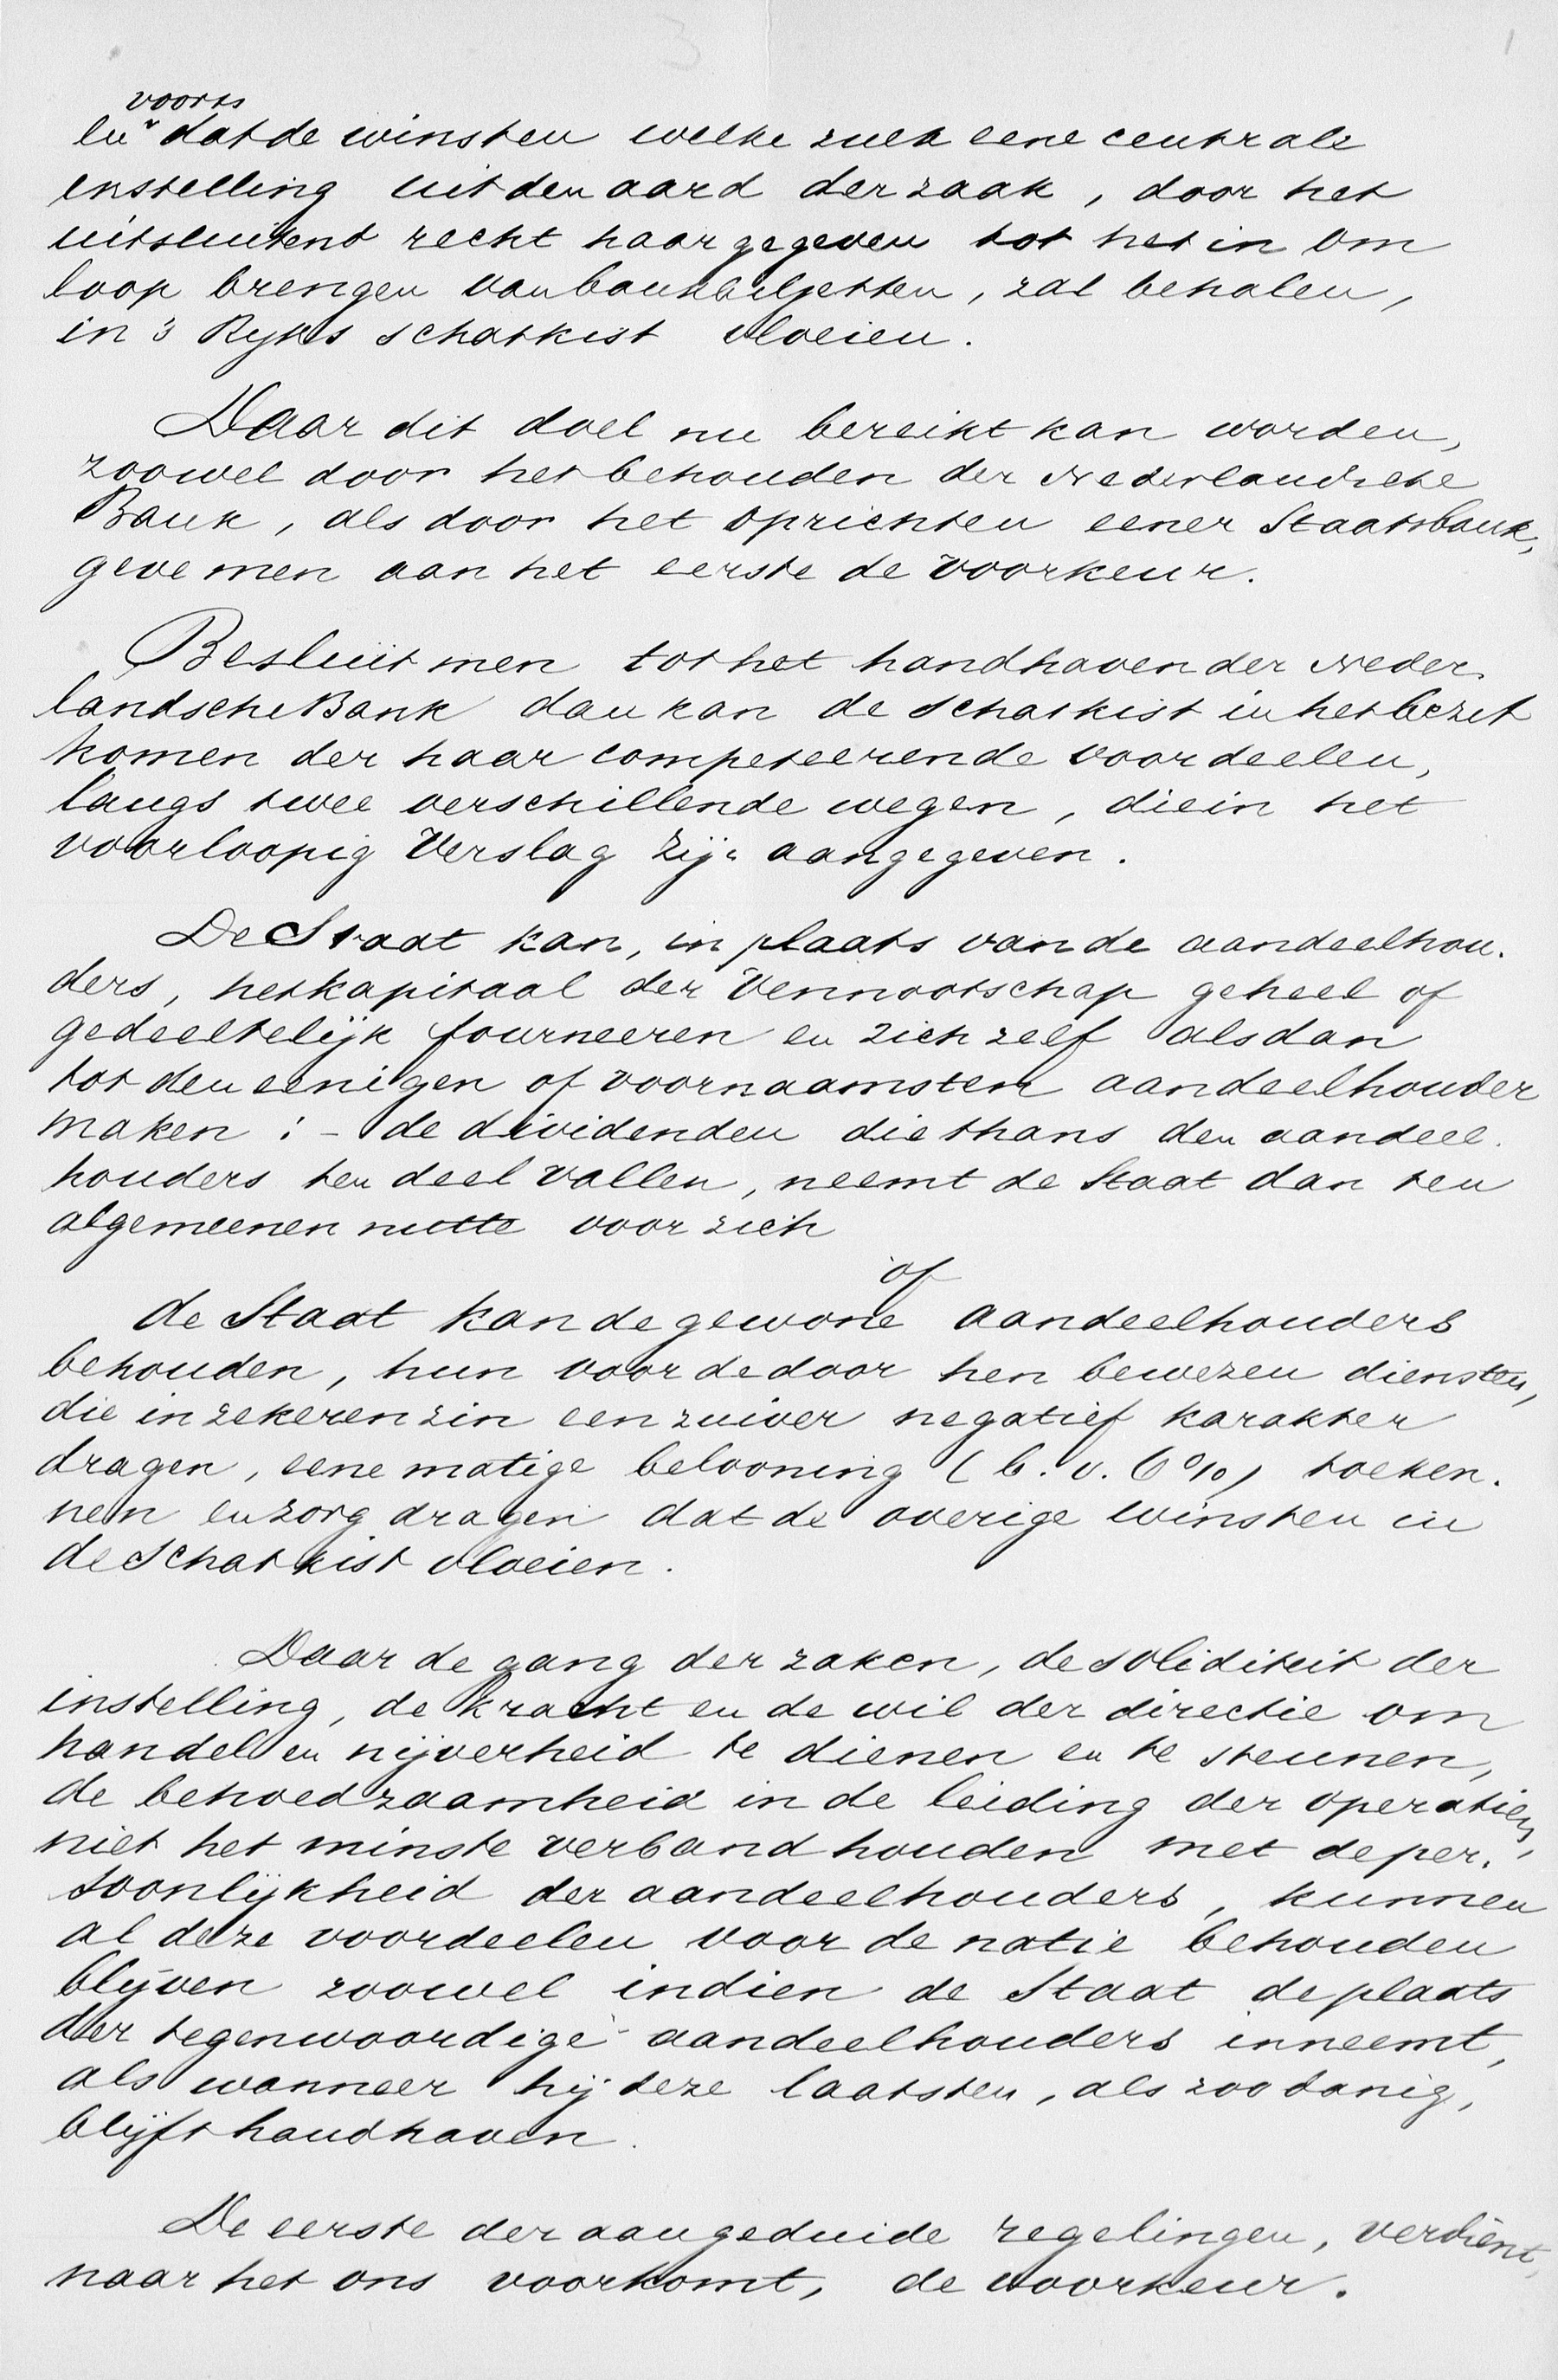 voorts
en dat de winsten welke zulk eene centrale
instelling uit den aard der zaak, door het
uitsluitend recht haar gegeven tot het in om
loop brengen van bankbiljetten, zal behalen,
in 's Rijks schatkist vloeien.
Daar dit doel nu bereikt kan worden,
zoowel door het behouden der Nederlandsche
Bank, als door het oprichten eener Staatsbank,
geve men aan het eerste de voorkeur.
Besluit men tot het handhaven der Neder-
landsche Bank dan kan de schatkist in het bezit
komen der haar competeerende voordeelen,
langs twee verschillende wegen, die in het
voorloopig Verslag zijn aangegeven.
De Staat kan, in plaats van de aandeelhou-
ders, het kapitaal der Vennootschap geheel of
gedeeltelijk fourneeren en zich zelf alsdan
tot den eenigen of voornaamsten aandeelhouder
maken: - de dividenden die thans den aandeel-
houders ten deel vallen, neemt de Staat dan ten
algemeenen nutte voor zich
of
de Staat kan de gewone aandeelhouders
behouden, hun voor de door hen bewezen diensten,
die in zekeren zin een zuiver negatief karakter
dragen, eene matige belooning (b.v. 6%) toeken-
nen en zorg dragen dat de overige winsten in
de schatkist vloeien.
Daar de gang der zaken, de soliditeit der
instelling, de kracht en de wil der directie om
handel en nijverheid te dienen en te steunen,
de behoedzaamheid in de leiding der operatien,
niet het minste verband houden met de per-
soonlijkheid der aandeelhouders, kunnen
al deze voordeelen voor de natie behouden
blijven zoowel indien de Staat de plaats
der tegenwoordige aandeelhouders inneemt,
als wanneer hij deze laatsten, als zoodanig,
blijft handhaven.
De eerste der aangeduide regelingen, verdient,
naar het ons voorkomt, de voorkeur.